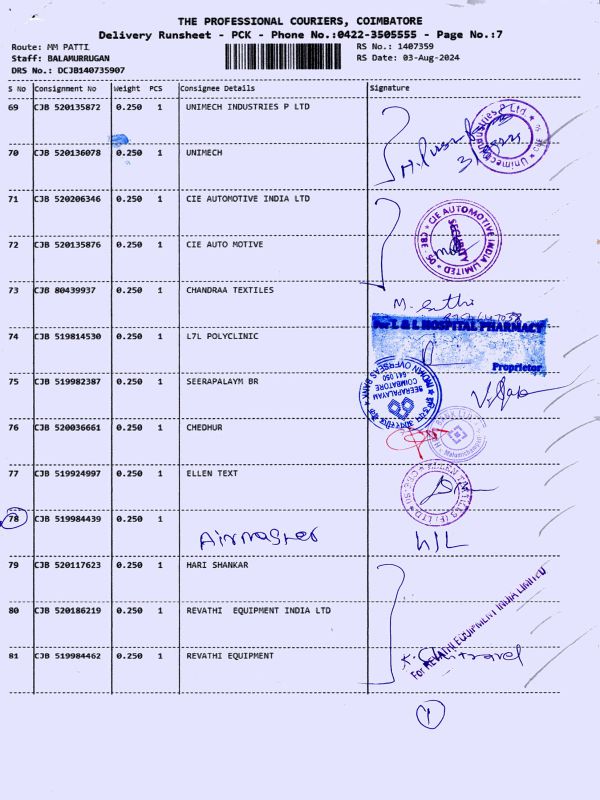 THE PROFESSIONAL COURIERS, COIMBATORE
Delivery Runsheet - PCK - Phone No.:0422-3505555 - Page No.:7
Route: MM PATTI
RS No.: 1407359
Staff: BALAMURRUGAN
RS Date: 03-Aug-2024
DRS No.: DCJB140735907
S No Consignment No Weight PCS Consignee Details Signature
69 CJB 520135872 0.250 1 UNIMECH INDUSTRIES P LTD
70 CJB 520136078 0.250 1 UNIMECH
71 CJB 520206346 0.250 1 CIE AUTOMOTIVE INDIA LTD
CIE AUTOMOTIVE INDIA LIMITED * CBE - 05 *
SECURITY
72 CJB 520135876 0.250 1 CIE AUTO MOTIVE
73 CJB 80439937 0.250 1 CHANDRAA TEXTILES
For L & L HOSPITAL PHARMACY
74 CJB 519814530 0.250 1 L7L POLYCLINIC
Proprietor
INDIAN OVERSEAS BANK
SEERAPALAYAM
COIMBATORE
641 050
75 CJB 519982387 0.250 1 SEERAPALAYM BR
76 CJB 520036661 0.250 1 CHEDHUR
77 CJB 519924997 0.250 1 ELLEN TEXT
78 CJB 519984439 0.250 1
Airmaster
79 CJB 520117623 0.250 1 HARI SHANKAR
80 CJB 520186219 0.250 1 REVATHI EQUIPMENT INDIA LTD
For REVATHI EQUIPMENT INDIA LIMITED
81 CJB 519984462 0.250 1 REVATHI EQUIPMENT
1